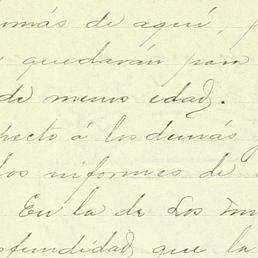 demás de aquí,
quedarán para
de menor edad.
pecto á los demás
los informes de
En la de Los
ofundidad que la